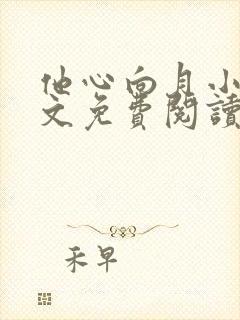 他心向月小
文免費閱讀
禾早